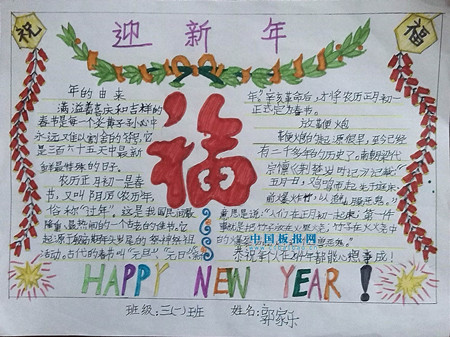 祝
迎新年
福
年的由来
满溢着喜庆和吉祥的
春节是每一个炎黄子孙心中
永远又难以割舍的符号,它
是三百六十五天中最新
鲜最特殊的日子。
农历正月初一是春
节,又叫阴历(农历)年,
俗称“过年”。这是我国民间最
隆重、最热闹的一个古老的传统佳节。它
起源于殷商期年头岁尾的祭神祭祖
活动。古代的春节叫“元旦”“元日”“新
福
年”。辛亥革命后,才将农历正月初一
正式定为春节。
放鞭炮
鞭炮的起源很早,至今已经
有二千多年的历史了。南朝梁代
宗懔《荆楚岁时记》记载
五月一日,鸡鸣而起,先于庭
前爆竹
意思是说:“人们在正月初一起床,第一件
事就是把竹子放在火里
中国板报网
恭祝大家在新年都能心想事成!
HAPPY NEW YEAR!
班级:三(一)班 姓名:郭家乐